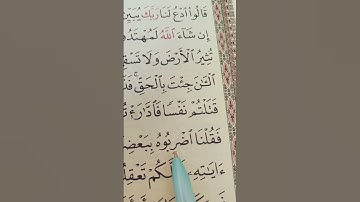 قَالُوا۟ ٱدْعُ لَنَا رَبَّكَ يُبَيِّن
إِن شَآءَ ٱللَّهُ لَمُهْتَدُ
تُثِيرُ ٱلْأَرْضَ وَلَا تَسْقِ
ٱلْـَٰٔنَ جِئْتَ بِٱلْحَقِّ ۚ فَذَ
قَتَلْتُمْ نَفْسًا فَٱدَّٰرَْٰٔ
فَقُلْنَا ٱضْرِبُوهُ بِبَعْضِ
ءَايَٰتِهِۦ لَعَلَّكُمْ تَعْقِلُ